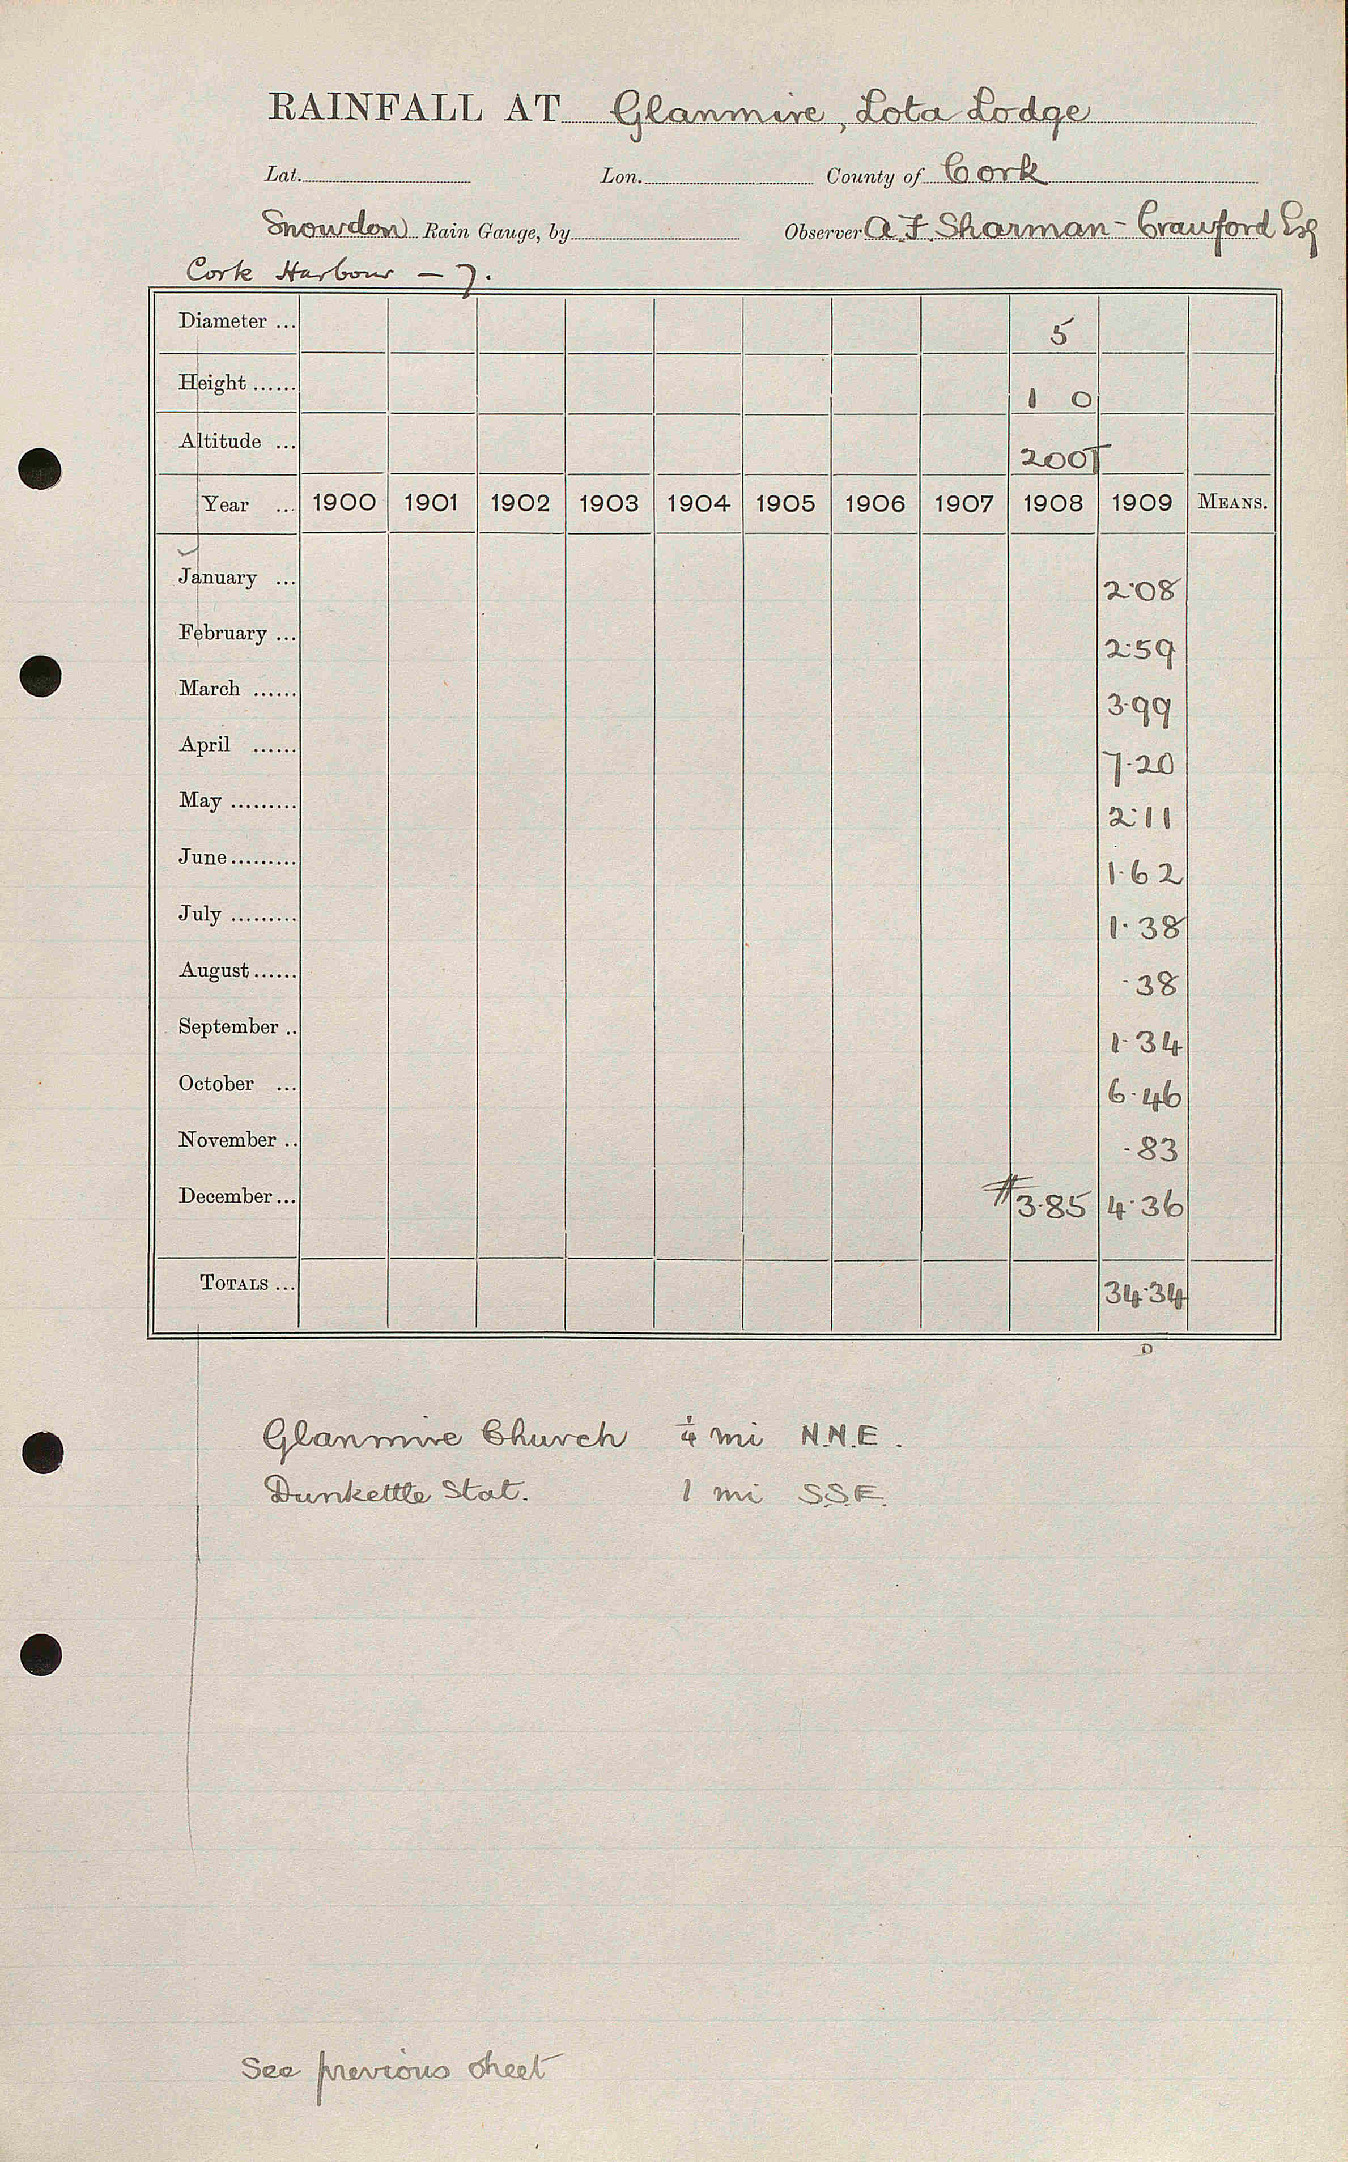 RAINFALL AT Glanmire, Lota Lodge
Lat. Lon. County of Cork
Snowdon Rain Gauge, by Observer A. F. Sharman-Crawford Esq
Cork Harbour – 7.
Diameter ... 5
Height ...... 1 0
Altitude ... 200T
Year ... 1900 1901 1902 1903 1904 1905 1906 1907 1908 1909 MEANS.
January ... 2·08
February ... 2·59
March ...... 3·99
April ...... 7·20
May ......... 2·11
June......... 1·62
July ......... 1·38
August...... ·38
September .. 1·34
October ... 6·46
November .. ·83
December... #3·85 4·36
TOTALS ... 34·34
D
Glanmire Church ¼ mi N.N.E.
Dunkettle Stat. 1 mi S.S.E.
See previous sheet